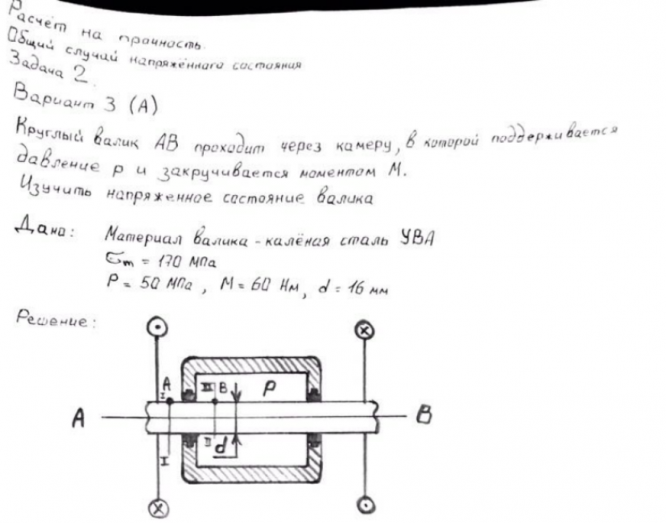 Расчёт на прочность.
Общий случай напряжённого состояния
Задача 2.
Вариант 3 (А)
Круглый валик АВ проходит через камеру, в которой поддерживается
давление р и закручивается моментом М.
Изучить напряженное состояние валика
Дано: Материал валика - калёная сталь У8А
σт = 170 МПа
P = 50 МПа, М = 60 Нм, d = 16 мм
Решение:
A III B P
I
A B
II d
I